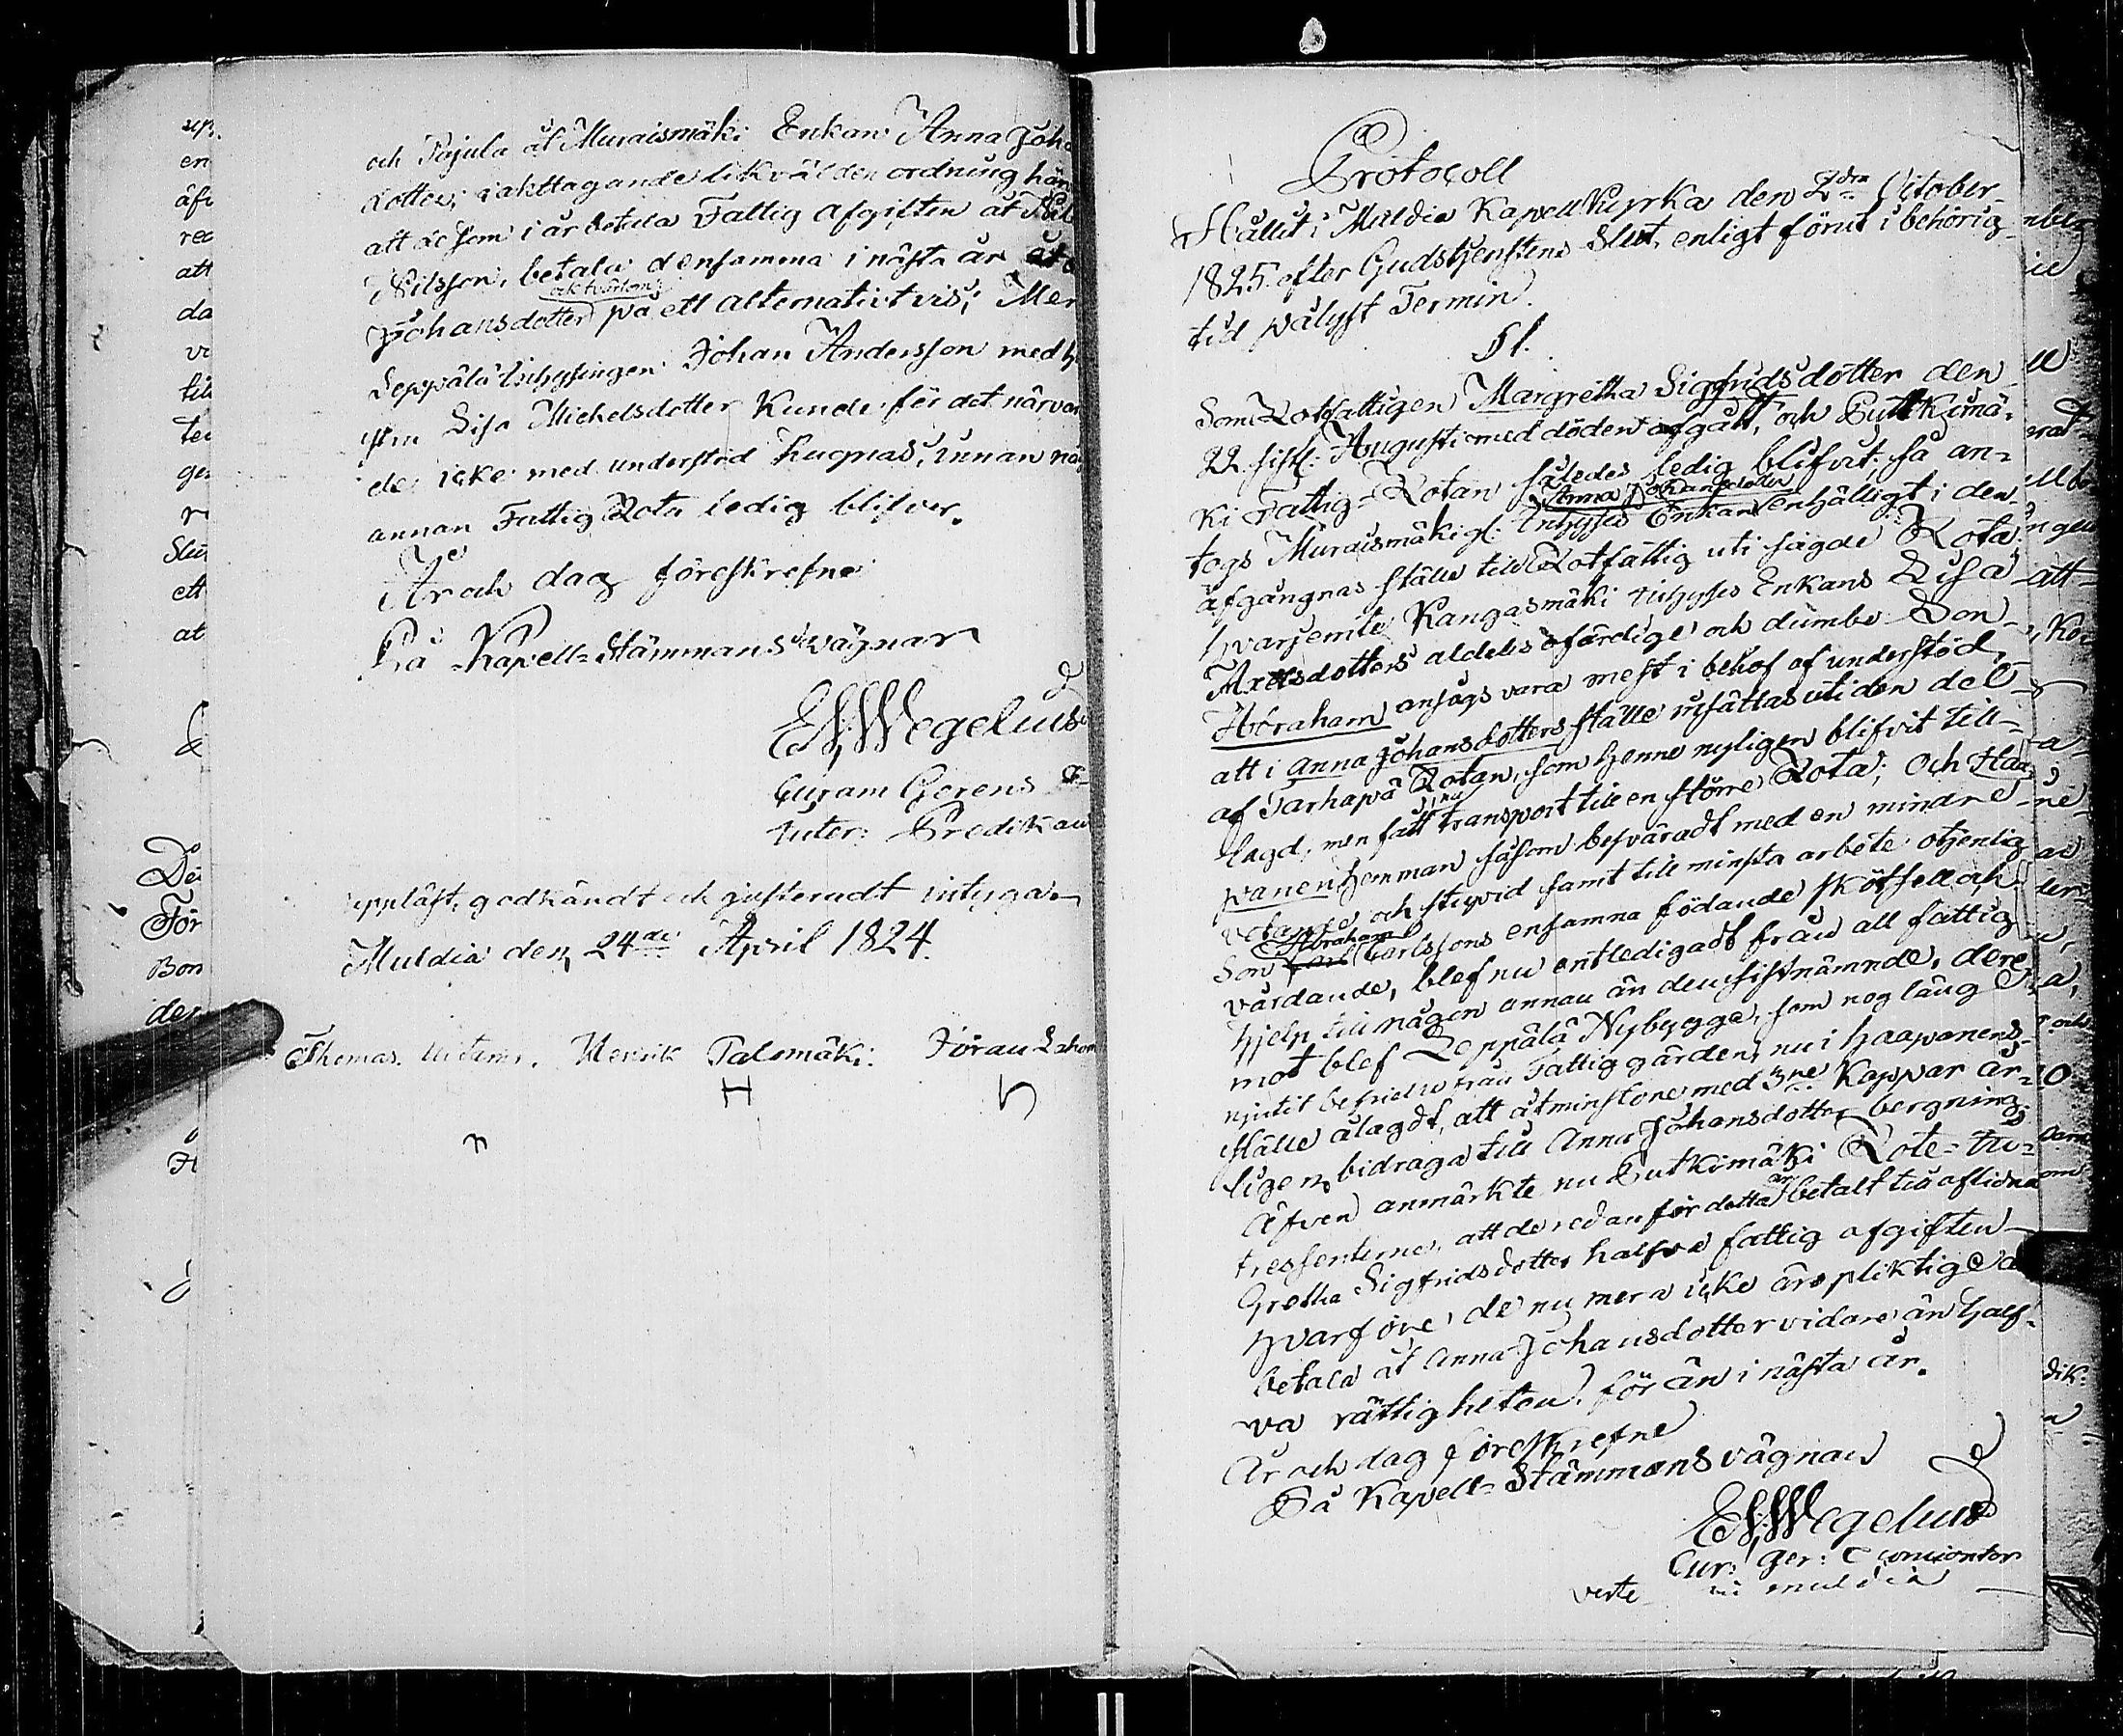 och Pajula åt Muraismäki Enkan Anna Joh
dotter, iakttagande likväl den ordning hän
att de som i år betala Fattig afgiften åt
Nilsson, betala densamma i nästa år åt
och tvärtom
Johansdotter på ett alternativt vis; Men
Seppälä Inhysingen Johan Andersson med h
stru Lisa Michelsdotter Kunde för det närvar
de icke med understöd hugnas, innan nå
annan Fattig Rota ledig blifver.
År och dag föreskrefne
På Kapell-Stämmans vägnar
Wegelius
Curam Gerens
Inter: Predikan
uppläst, godkändt och justeradt intyga
Muldia den 24de April 1824.
Thomas Henrik Palomäki. Jöran
H
Protocoll
Hållit i Muldia Kapell Kyrka den 2dra October
1825. efter Gudstjenstens Slut, enligt förut i behörig
tid pålyst Termin.
§ 1.
Som Rotfattigen Margretha Sigfridsdotter den
22 sistl: Augusti med döden afgått, och Putkimä-
ki Fattig-Rotan således ledig blifvit, så an-
Anna Johansdotter
togs Muraismäki gl: Inhyses Enkan enhälligt i den
afgångnas ställe till Rotfattig uti sagde Rota.
hvarjemte Kangasmäki inhyses Enkans Lisa
Axelsdotters aldeles ofärdige och dumbe Son
Abraham ansågs vara mest i behof af understöd,
att i Anna Johansdotters ställe insättas uti den del
af Tarhapä Rotan, som henne nyligen blifvit till-
nu
lagd, men fått transport till en större Rota; och Haa-
panen hemman såsom besväradt med en mindre
vetande och styvid samt till minsta arbete otjenlig
Abraham
Son Carlssons ensamna födande skötsel och
vårdande, blef nu entledigadt från all fattig
hjelp till någon annan än den sistnämnde, dere
mot blef Leppälä Nybygge, som nog läng
njutit befrielse från Fattig gärden, nu i Haapanens
ställe ålagdt, att åtminstone med 3ne Kappar år-
ligen bidraga till Anna Johansdotter bergning.
Äfven anmärkte nu Putkimäki Rote-In-
år
tressenterne, att de redan för detta betalt till aflidna
Gretha Sigfridsdotter halfva fattig afgiften
hvarföre de nu mera icke äro pliktige
betala åt Anna Johansdotter vidare än half-
va rättigheten, för än i nästa år.
År och dag föreskrefne
På Kapell-Stämmans vägnar
Wegelius
Cur: Ger: Concionator
in Muldia
verte